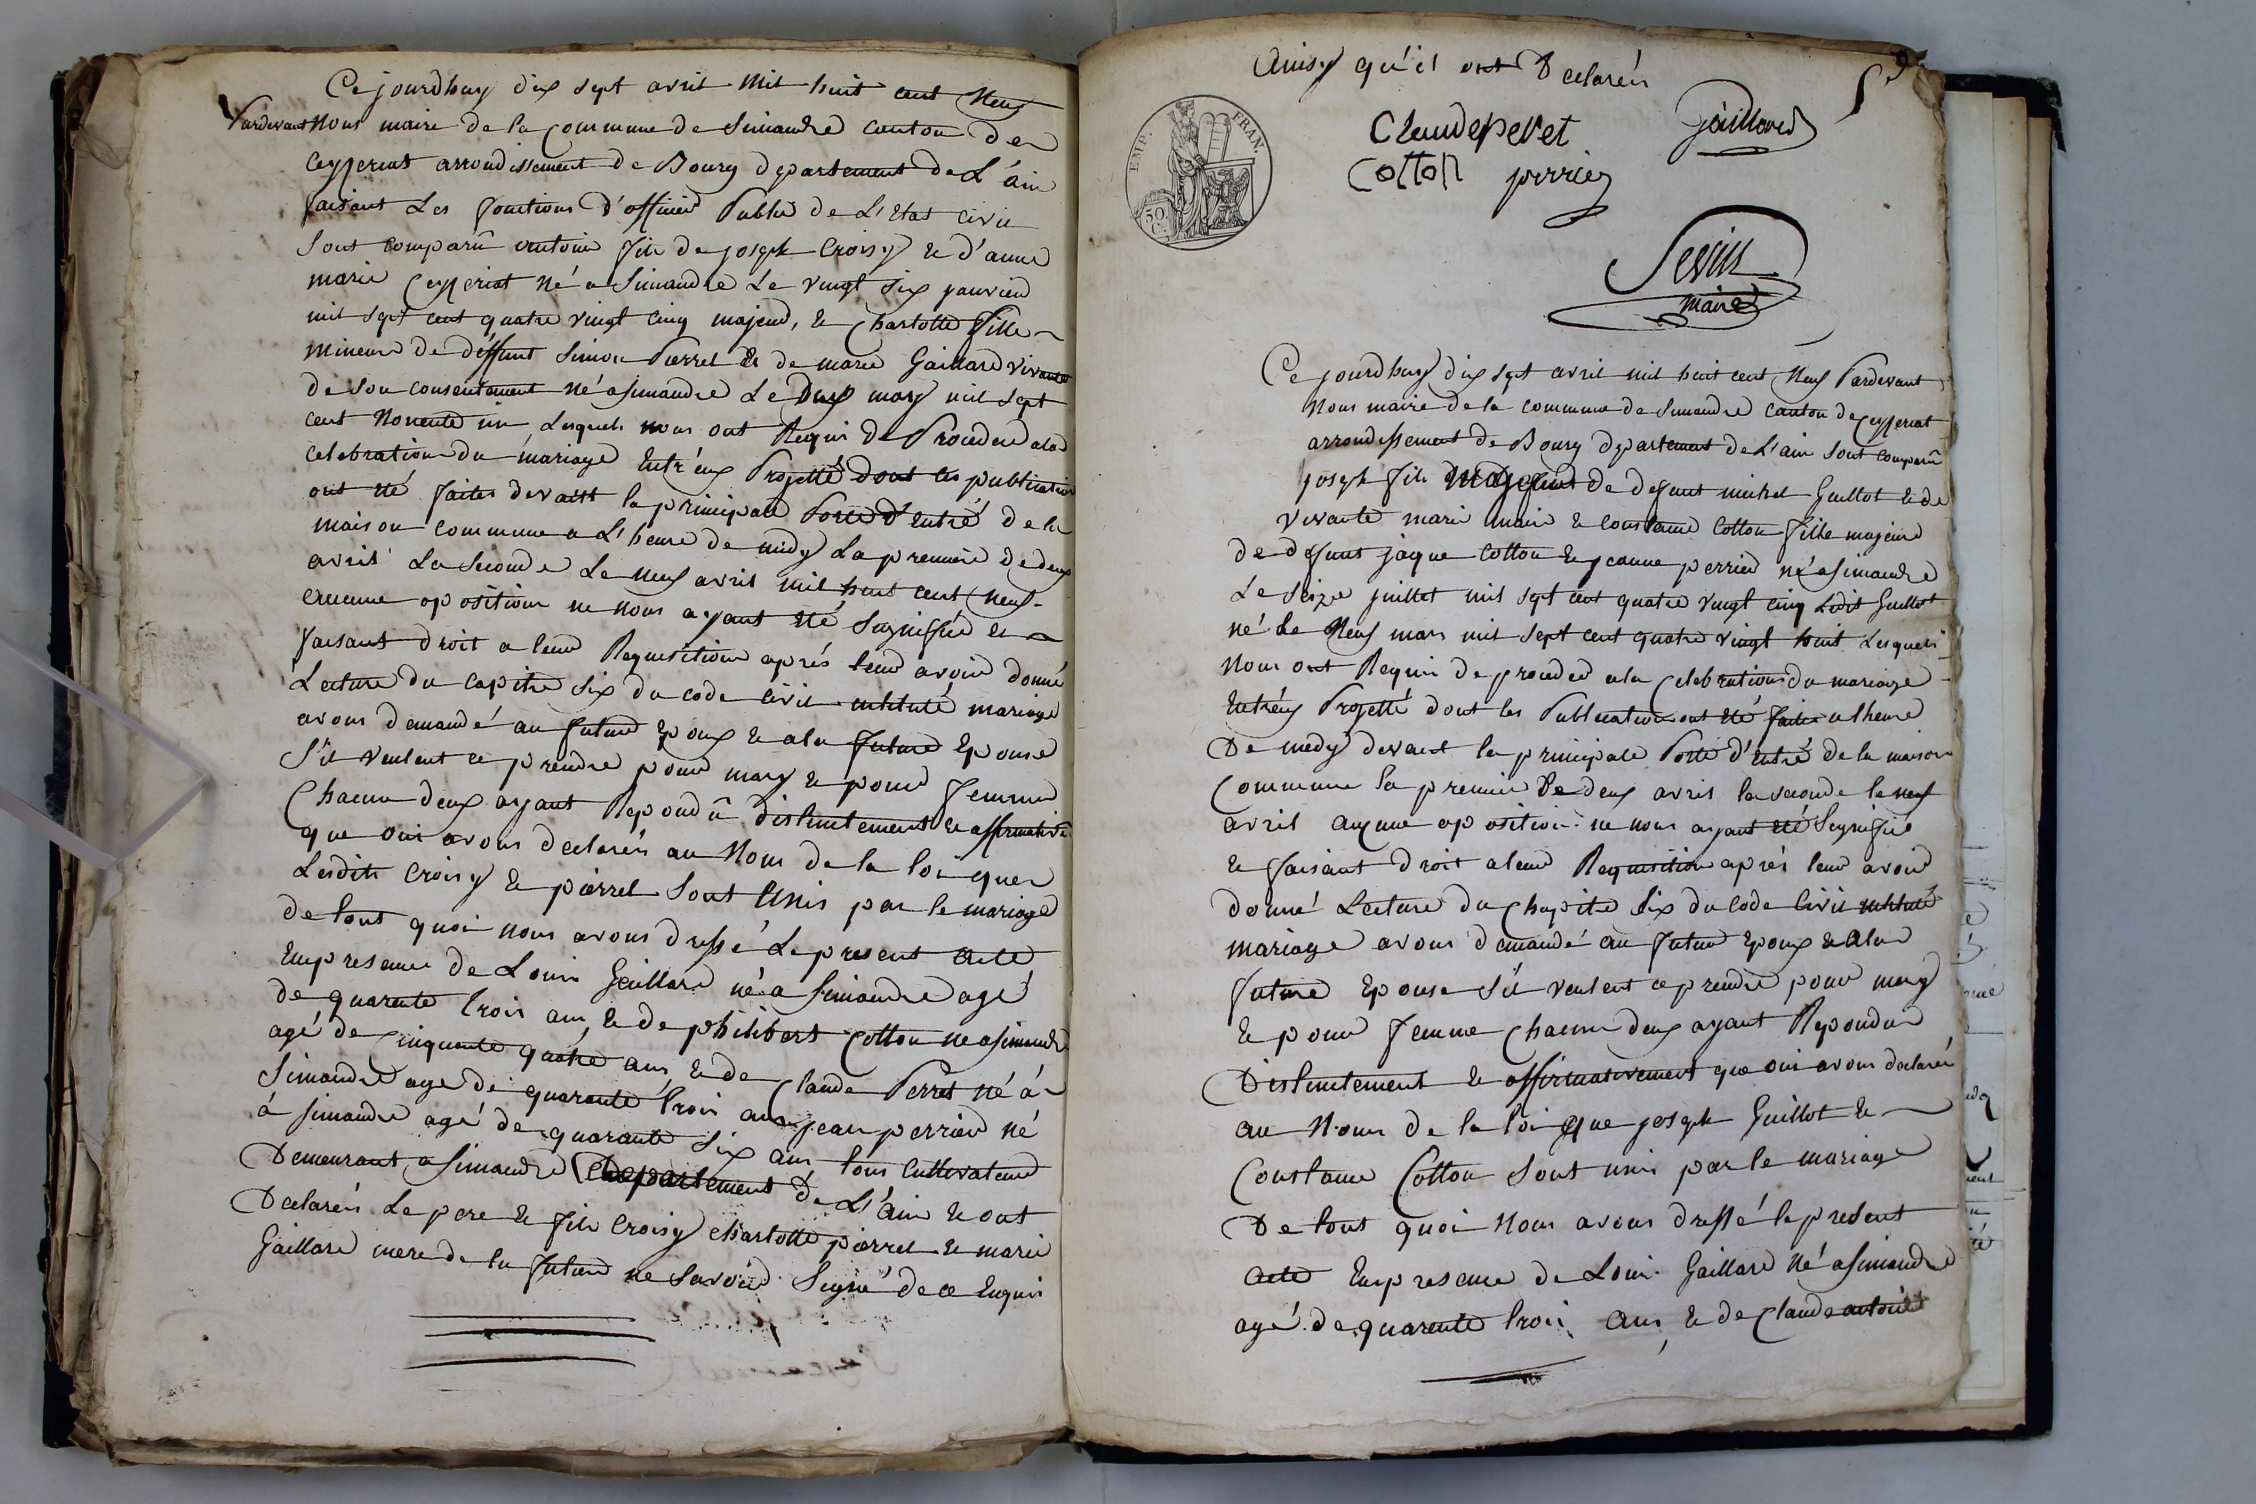 Ce jourdhuy dix sept avril mil huit cent neuf
Pardevant nous maire de la Commune de Simandre canton de
ceyzeriat arrondissement de Bourg departement de L'ain
faisant Les fonctions d'officier Public de L'Etat civil
Sont comparû antoine fils de joseph Croisy et d'anne
marie Ceyzeriat né a Simandre Le vingt six janvier
mil sept cent quatre vingt cinq majeur, et Charlotte fille
mineure de deffunt Simon Pierrel et de marie Gaillard vivante
de son consentement né a simandre Le deux may mil sept
cent nonente un Lesquels nous ont Requis de Proceder a la
celebration du mariage Entr'eux Projetté dont les publications
ont été faites devant la principale Porte d'entré de la
maison commune a L'heure de midy La premiere Le deux
avril La Seconde Le neuf avril mil huit cent neuf
aucune oposition ne nous ayant été Signifiée et
faisant droit a leur Requisition aprés leur avoir donné
Lecture du capitre six du code civil intitulé mariage
avons demandé au futur Epoux et a la future Epouse
S'il veulent ce prendre pour mary et pour femme
Chacun deux ayant Repondû distinctement et affirmative
que oui avons declarés au nom de la loi que
Lesdits Croisy et pierrel Sont Unis par le mariage
de tout quoi nous avons dressé Le present acte
En presence de Louis Gaillard né a simandre agé
de quarente trois ans, et de philibert Cotton ne a simandre
agé de cinquante quatre ans et de Claude Perret né á
Simandre age de quarante trois ans jean perrier né
á simandre agé de quarante six ans tous Cultivateur
Demeurant a simandre departement de L'ain et ont
Declarés Le pere et fils Croisy Charlotte pierrel et marie
Gaillard mere de la future ne savoir Signé de ce Enquis
Ainsy qu'il ont Declarés
EMP. FRAN.
50 C.
Claude peret Gaillard
Cotton perrier
Sevin
maire
Ce jourdhuy dix sept avril mil huit cent neuf Pardevant
nous maire de la commune de Simandre canton de Ceyzeriat
arrondissement de Bourg departement de L'ain Sont comparû
joseph fils majeur de defunt michel Guillot et de
vivante marie et constance Cotton fille majeure
de defunt jaque Cotton et jeanne perrier né a simandre
Le seize juillet mil sept cent quatre vingt cinq Ledit Guillot
né Le neuf mars mil sept cent quatre vingt huit Lesquels
nous ont Requis de proceder a la Celebration du mariage
Entréux Projetté dont les Publications ont été faites a lheure
De midy devant la principale Porte d'entré de la maison
Commune la premier Le deux avril la seconde le neuf
avril aucune oposition ne nous ayant été Signifié
et faisant droit a leur Requisition aprés leur avoir
donné Lecture du Chapitre six du Code Civil intitulé
mariage avons demandé au futur Epoux et a la
future Epouse s'il veulent ce prendre pour mary
et pour femme Chacun deux ayant Repondu
Distinctement et affirmativement que oui avons declarés
au nom de la loi que joseph Guillot et
Constance Cotton Sont unis par le mariage
De tout quoi nous avons dressé le present
acte En presence de Louis Gaillard né a simandre
agé de quarente trois ans, et de Claude antoine